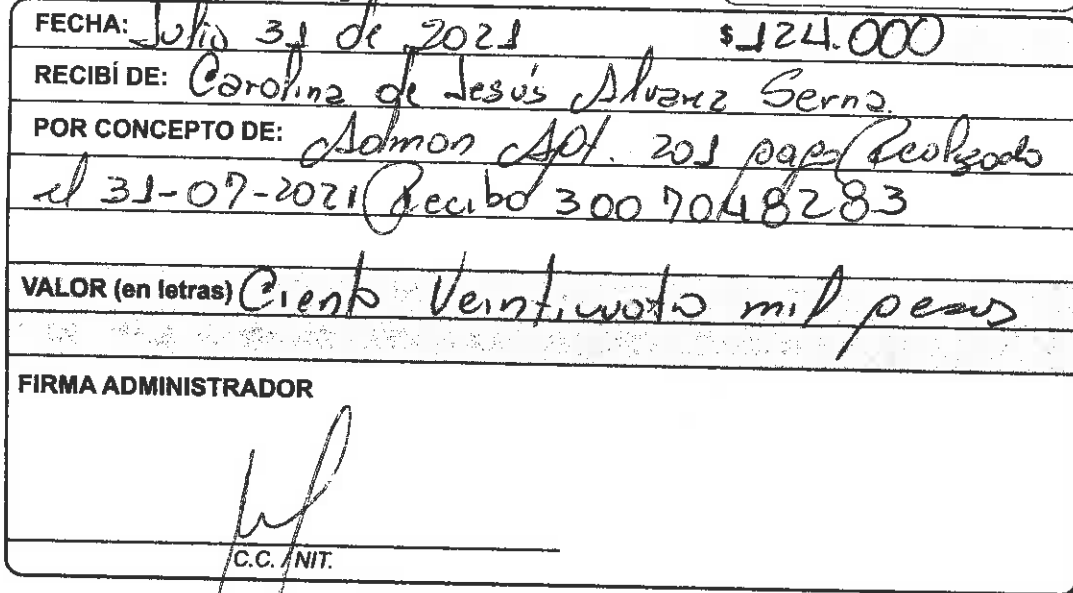 FECHA: Julio 31 de 2021 $124.000
RECIBÍ DE: Carolina de Jesús Alvarez Serna.
POR CONCEPTO DE: Admon Apt. 201 pago Realizado
el 31-07-2021 Recibo 3007048283
VALOR (en letras) Ciento Veinticuatro mil pesos
FIRMA ADMINISTRADOR
C.C. / NIT.